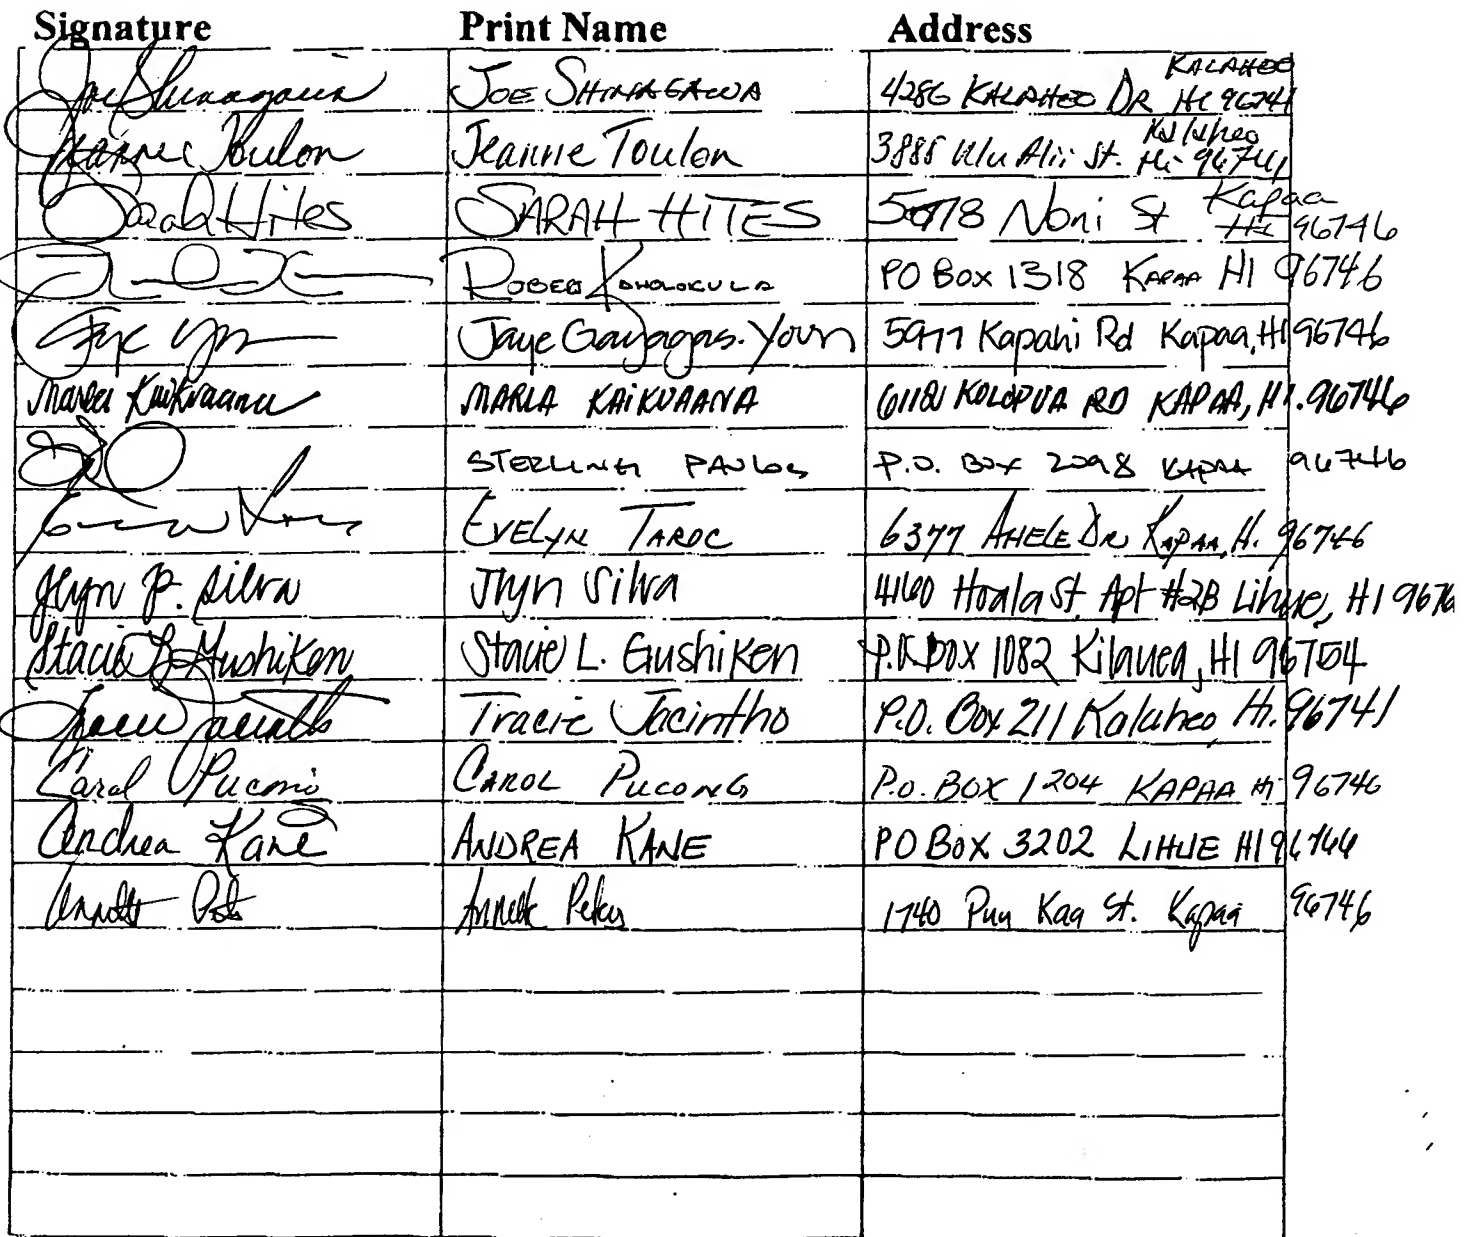 Signature Print Name Address
Joe Shinagawa JOE SHINAGAWA 4286 KALAHEO DR KALAHEO HI 96741
Jeannie Toulon Jeannie Toulon 3888 Ulu Alii St. Kalaheo Hi 96741
Sarah Hites SARAH HITES 5078 Noni St Kapaa HI 96746
ROBERT KAHOLOKULA PO Box 1318 KAPAA HI 96746
Jaye Gayagas-Youn 5977 Kapahi Rd Kapaa, HI 96746
Marla Kaikuaana MARLA KAIKUAANA KOLOPUA RD KAPAA, HI. 96746
STERLING PAULOS P.O. BOX 2098 KAPAA 96746
EVELYN TAROC 6377 AHELE DR KAPAA, HI. 96746
Jlyn P. Silva Jlyn Silva 4160 Hoala St. Apt #2B Lihue, HI
Stacie L. Gushiken Stacie L. Gushiken P.O. BOX 1082 Kilauea, HI 96754
Tracie Jacintho Tracie Jacintho P.O. Box 211 Kalaheo, Hi. 96741
Carol Pucong CAROL PUCONG P.O. BOX 1204 KAPAA HI 96746
Andrea Kane ANDREA KANE PO BOX 3202 LIHUE HI 96766
Annette Annette 1740 Puu Kaa St. Kapaa 96746